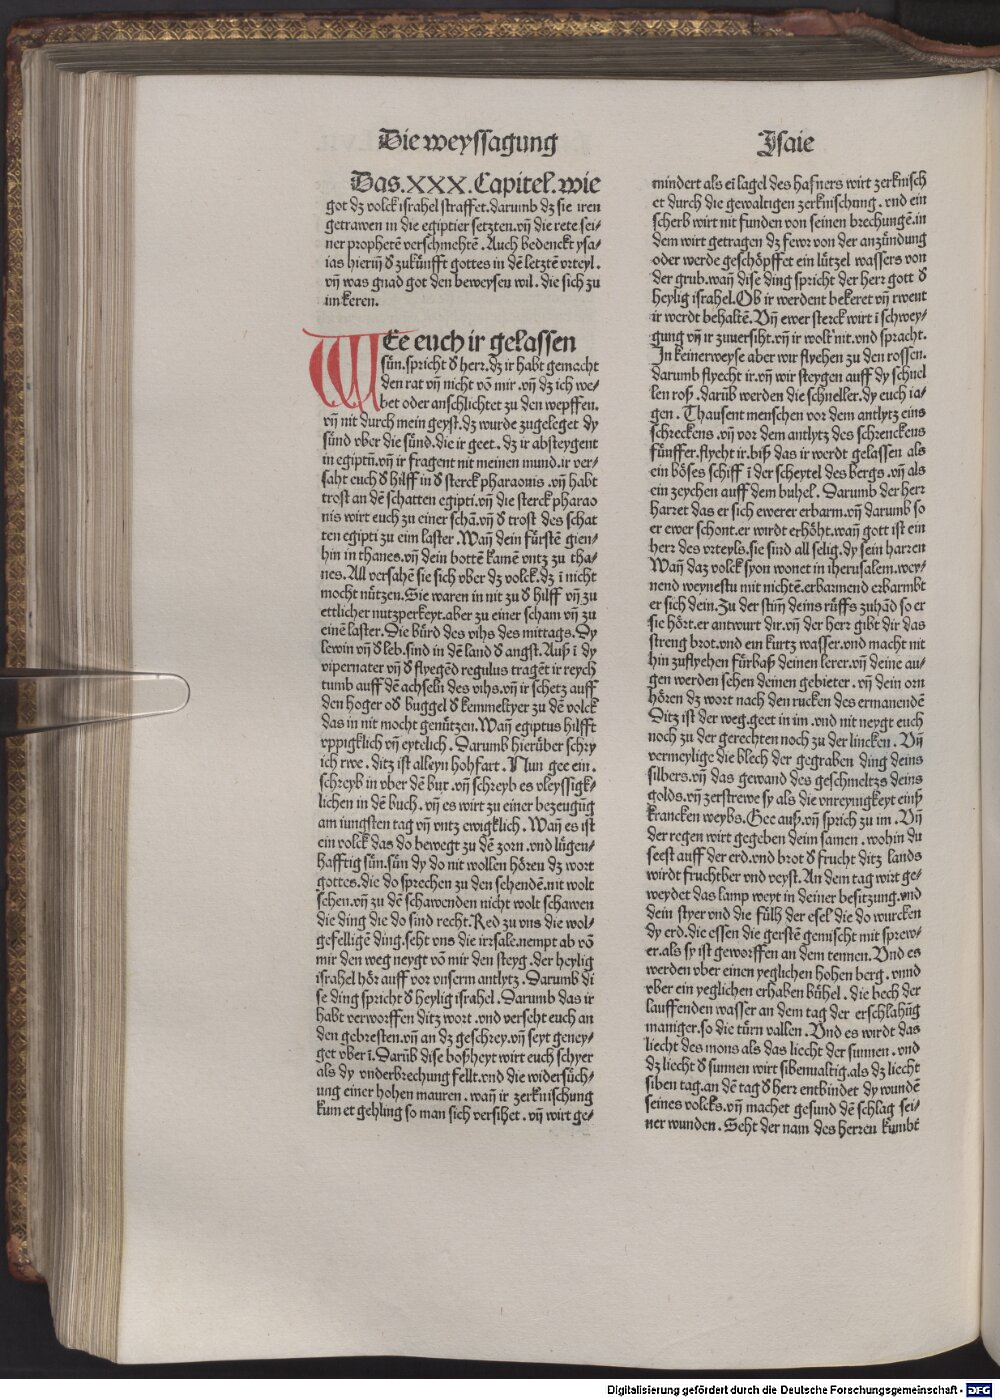 Die weyssagung
Isaie
Das.XXX.Capitel.wie
got dz volck israhel straffet.darumb dz sie iren
getrawen in die egiptier setzten.vñ die rete sei⸗
ner prophetē verschmehtē. Auch bedenckt ysa⸗
ias hieriñ đ zukünfft gottes in dē letztē vrteyl.
vñ was gnad got den beweysen wil. die sich zu
im keren.
WEe euch ir gelassen
sün.spricht đ herr.dz ir habt gemacht
den rat vñ nicht võ mir .vñ dz ich we⸗
bet oder anschlichtet zu den wepffen.
vñ nit durch mein geyst.dz wurde zugeleget dy
sünd vber die sünd.die ir geet. dz ir absteygent
in egiptñ.vñ ir fragent nit meinen mund.ir ver⸗
saht euch đ hilff in đ sterck pharaonis .vñ habt
trost an dē schatten egipti.vñ die sterck pharao
nis wirt euch zu einer schā.vñ đ trost des schat
ten egipti zu eim laster. Wañ dein fürstē gien⸗
hin in thanes.vñ dein bottē kamē vntz zu tha⸗
nes. All versahē sie sich vber dz volck.dz ī nicht
mocht nützen.Sie waren in nit zu đ hilff vñ zu
ettlicher nutzperkeyt.aber zu einer scham vñ zu
einē laster.Die bürd des vihs des mittags.Dy
lewin vñ đ leb.sind in dē land đ angst.Auß ī dy
vipernater vñ đ flyegēd regulus tragēt ir reych
tumb auff dē achseln des vihs.vñ ir schetz auff
den hoger od buggel đ kemmeltyer zu dē volck
das in nit mocht genützen.Wañ egiptus hilfft
vppigklich vñ eytelich . Darumb hierüber schry
ich rwe . ditz ist alleyn hohfart. Nun gee ein.
schreyb in vber dē bux .vñ schreyb es vleyssigk⸗
lichen in dē buch .vñ es wirt zu einer bezeugūg
am iungsten tag vñ vntz ewigklich . Wañ es ist
ein volck das do bewegt zu dē zorn .vnd lügen⸗
hafftig sün.sün dy do nit wollen hören dz wort
gottes.die do sprechen zu den sehendē.nit wolt
sehen.vñ zu dē schawenden nicht wolt schawen
die ding die do sind recht.Red zu vns die wol⸗
gefelligē ding.seht vns die irrsale.nempt ab võ
mir den weg neygt võ mir den steyg .der heylig
israhel hör auff vor vnserm antlytz . Darumb di
se ding spricht đ heylig israhel . Darumb das ir
habt verworffen ditz wort .vnd verseht euch an
den gebresten.vñ an dz geschrey.vñ seyt geney⸗
get vber ī. Darüb dise boßheyt wirt euch schyer
als dy vnderbrechung fellt.vnd die widersüch⸗
ung einer hohen mauren . wañ ir zerknischung
kumet gehling so man sich versihet . vñ wirt ge⸗
mindert als ei lagel des hafners wirt zerknisch
et durch die gewaltigen zerknischung .vnd ein
scherb wirt nit funden von seinen brechungē.in
dem wirt getragen dz fewr von der anzündung
oder werde geschöpffet ein lützel wassers von
der grub.wañ dise ding spricht der herr gott đ
heylig israhel.Ob ir werdent bekeret vñ rwent
ir werdt behaltē. Vñ ewer sterck wirt ī schwey⸗
gung vñ ir zuuersiht.vñ ir wolt nit.vnd spracht.
In keinerweyse aber wir flyehen zu den rossen.
darumb flyecht ir.vñ wir steygen auff dy schnel
len roß .darüb werden die schneller.dy euch ia⸗
gen . Thausent menschen vor dem antlytz eins
schreckens .vñ vor dem antlytz des schrenckens
fünffer.flycht ir.biß das ir werdt gelassen als
ein böses schiff ī der scheytel des bergs .vñ als
ein zeychen auff dem buhel . Darumb der herr
harzet das er sich ewerer erbarm.vñ darumb so
er ewer schont.er wirdt erhöht.wañ gott ist ein
herz des vrteyls.sie sind all selig.dy sein harzen
Wañ daz volck syon wonet in iherusalem.wey⸗
nend weynestu mit nichtē.erbarmend erbarmbt
er sich dein.Zu der stiṁ deins rüffs zuhād so er
sie hört.er antwurt dir.vñ der herr gibt dir das
streng brot.vnd ein kurtz wasser.vnd macht nit
hin zuflyehen fürbaß deinen lerer.vñ deine au⸗
gen werden sehen deinen gebieter .vñ dein orn
hören dz wort nach den rucken des ermanendē
Ditz ist der weg.geet in im .vnd nit neygt euch
noch zu der gerechten noch zu der lincken . Vñ
vermeylige die blech der gegraben ding deins
silbers.vñ das gewand des geschmeltzs deins
golds.vñ zerstrewe sy als die vnreynigkeyt einß
krancken weybs.Gee auß.vñ sprich zu im . Vñ
der regen wirt gegeben deim samen .wohin du
seest auff der erd.vnd brot đ frucht ditz lands
wirdt fruchtber vnd veyst.An dem tag wirt ge⸗
weydet das lamp weyt in deiner besitzung.vnd
dein styer vnd die fülh der esel die do wurcken
dy erd.die essen die gerstē gemischt mit sprew⸗
er.als sy ist geworffen an dem tennen. Vnd es
werden vber einen yeglichen hohen berg .vnnd
vber ein yeglichen erhaben bühel . die bech der
lauffenden wasser an dem tag der erschlahūg
maniger.so die türn vallen . Vnd es wirdt das
liecht des mons als das liecht der sunnen .vnd
dz liecht đ sunnen wirt sibenualtig.als dz liecht
siben tag.an dē tag đ herr entbindet dy wundē
seines volcks.vñ machet gesund dē schlag sei⸗
ner wunden . Seht der nam des herren kumbt
Digitalisierung gefördert durch die Deutsche Forschungsgemeinschaft - DFG